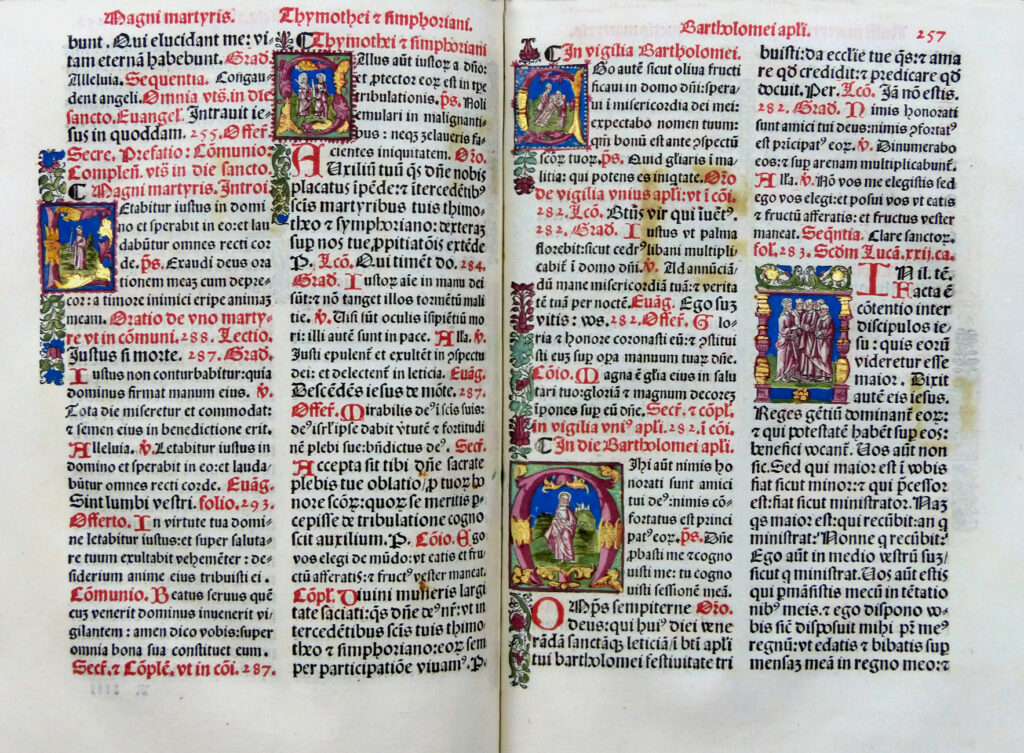 Magni martyris.
Thymothei ⁊ simphoriani.
bunt. Qui elucidant me: vi⸗
tam eternā habebunt. Grad.
Alleluia. Sequentia. Congau⸗
dent angeli. Omnia vts̄. in die
sancto. Euangel̄. Intrauit ie⸗
sus in quoddam. 255. Offer̄.
Secre. Prefatio: Cōmunio:
Complen̄. vts̄. in die sancto.
C Magni martyris. Introi.
Letabitur iustus in domi
no et sperabit in eo: et lau
dabūtur omnes recti cor
de. p̄s. Exaudi deus ora
tionem meaꝫ cum depre⸗
cor: a timore inimici eripe animaꝫ
meam. Oratio de vno marty⸗
re vt in cōmuni. 288. Lectio.
Justus si morte. 287. Grad.
Iustus non conturbabitur: quia
dominus firmat manum eius. ℣.
Tota die miseretur et commodat:
⁊ semen eius in benedictione erit.
Alleluia. ℣. Letabitur iustus in
domino et sperabit in eo: et lauda⸗
būtur omnes recti corde. Euāg.
Sint lumbi vestri. folio. 293.
Offerto. In virtute tua domi⸗
ne letabitur iustus: et super saluta⸗
re tuum exultabit vehemēter: de⸗
siderium anime eius tribuisti ei.
Cōmunio. Beatus seruus quē
cuꝫ venerit dominus inuenerit vi⸗
gilantem: amen dico vobis: super
omnia bona sua constituet eum.
Secr̄. ⁊ Cōple. vt in cōi. 287.
C Thymothei ⁊ simphoriani
Sallus aūt iustoꝝ a dn̄o:
et ꝓtector eoꝝ est in tꝑe
tribulationis. p̄s. Noli
emulari in malignanti⸗
bus: neqꝫ zelaueris fa⸗
cientes iniquitatem. Oro.
Auxiliū tuū qs̄ dn̄e nobis
placatus īpēde: ⁊ ītercedētibꝰ
scis martyribus tuis thimo⸗
theo ⁊ symphoriano: dexteraꝫ
sup nos tue ꝓpitiatōis extēde
P. Lcō. Qui timēt do. 284.
Grad. Iustoꝝ aīe in manu dei
sūt: ⁊ nō tanget illos tormētū mali
tie. ℣. Uisi sūt oculis īsipiētū mo
ri: illi autē sunt in pace. Alla. ℣.
Justi epulent̄ et exultēt in ꝯspectu
dei: et delectent̄ in leticia. Euāg.
Descēdēs iesus de mōte. 287.
Offer̄. Mirabilis deꝰ ī scis suis:
deꝰ isrl̄ ipse dabit v̄tutē ⁊ fortitudi
nē plebi sue: bn̄dictus deꝰ. Secr̄.
Accepta sit tibi dn̄e sacrate
plebis tue oblatio, ꝓ tuoꝝ ho
nore scōꝝ: quoꝝ se meritis p⸗
cepisse de tribulatione cogno
scit auxilium. P. Cōio. Ego
vos elegi de mūdo: vt eatis et fru⸗
ctū afferatis: ⁊ fructꝰ vester maneat.
Cōpl. Diuini muneris largi
tate saciati: qs̄ dn̄e deꝰ nr̄: vt in
tercedētibus scis tuis thimo
theo ⁊ simphoriano: eoꝝ sem
per participatiōe viuamꝰ. P.
Bartholomei apl̄i.
257
C In vigilia Bartholomei.
Ego autē sicut oliua fructi
ficaui in domo dn̄i: spera⸗
ui ī misericordia dei mei:
expectabo nomen tuum:
qm̄ bonū est ante ꝯspectū
scōꝝ tuoꝝ. p̄s. Quid gl̄iaris ī ma⸗
litia: qui potens es iniqtate. Oro
de vigilia vnius apl̄i: vt ī cōi.
282. Lcō. Btūs vir qui īuēt⁹.
282. Grad. Iustus vt palma
florebit: sicut cedrꝰ libani multipli
cabit̄ ī domo dn̄i. ℣. Ad annūciā⸗
dū mane misericordiā tuā: ⁊ verita
tē tuā per noctē. Euāg. Ego suꝫ
vitis: vos. 282. Offer̄. Glo⸗
ria ⁊ honore coronasti eū: ⁊ ꝯstitui
sti euꝫ sup oꝑa manuum tuaꝝ dn̄e.
Cōio. Magna ē gl̄ia eius in salu
tari tuo: gloriā ⁊ magnum decoreꝫ
īpones sup eū dn̄e. Secr̄. ⁊ cōpl.
in vigilia vniꝰ apl̄i. 282. ī cōi.
C In die Bartholomei apl̄i
Mihi aūt nimis ho
norati sunt amici
tui deꝰ: nimis cō⸗
fortatus est princi
patꝰ eoꝝ. p̄s. Dn̄e
ꝓbasti me ⁊ cogno
uisti me: tu cogno
uisti sessionē meā.
Omp̄s sempiterne Oro.
deus: qui huiꝰ diei vene
rādā sanctāqꝫ leticiā ī bti apl̄i
tui bartholomei festiuitate tri
buisti: da ecclie tue qs̄: ⁊ ama
re qđ credidit: ⁊ predicare qđ
docuit. Per. Lcō. Jā nō estis.
282. Grad. Nimis honorati
sunt amici tui deus: nimis ꝯfortatꝰ
est pricipatꝰ eoꝝ. ℣. Dinumerabo
eos: ⁊ sup arenam multiplicabunt̄.
Alla. ℣. Nō vos me elegistis sed
ego vos elegi: et posui vos vt eatis
⁊ fructū afferatis: et fructus vester
maneat. Seqn̄tia. Clare sanctoꝝ.
fol. 283. Scđm Lucā. xxij. ca.
In il. tē.
Facta ē
cōtentio inter
discipulos ie⸗
su: quis eorū
videretur esse
maior. Dixit
autē eis iesus.
Reges gētiū dominant̄ eoꝝ:
⁊ qui potestatē habēt sup eos:
benefici vocant̄. Uos aūt non
sic. Sed qui maior est ī vobis
fiat sicut minor: ⁊ qui p̄cessor
est: fiat sicut ministrator. Naꝫ
qs maior est: qui recūbit: an q
ministrat? Nonne q recūbit?
Ego aūt in medio vestrū suꝫ
sicut q ministrat. Uos aūt estis
qui ꝑmāsistis mecū in tētatio
nibꝰ meis. ⁊ ego dispono vo⸗
bis sic̄ disposuit mihi pr̄ meꝰ
regnū: vt edatis ⁊ bibatis sup
mensaꝫ meā in regno meo: ⁊